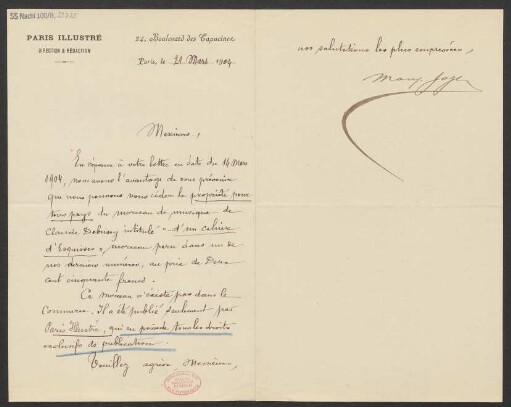 55 Nachl 100/B,
PARIS ILLUSTRÉ
DIRECTION & RÉDACTION
24, Boulevard des Capucines
Paris, le 21 Mars 1904
Messieurs,
En réponse à votre lettre en date du 14 Mars
1904, nous avons l'avantage de vous prévenir
que nous pouvons vous céder la propriété pour
tous pays du morceau de musique de
Claude Debussy intitulé "d'un cahier
d'Esquisses", morceau paru dans un de
nos derniers numéros, au prix de Deux
cent cinquante francs.
Ce morceau n'existe pas dans le
Commerce. Il a été publié seulement par
Paris Illustré, qui en possède tous les droits
exclusifs de publication.
Veuillez agréer Messieurs,
nos salutations les plus empressées,